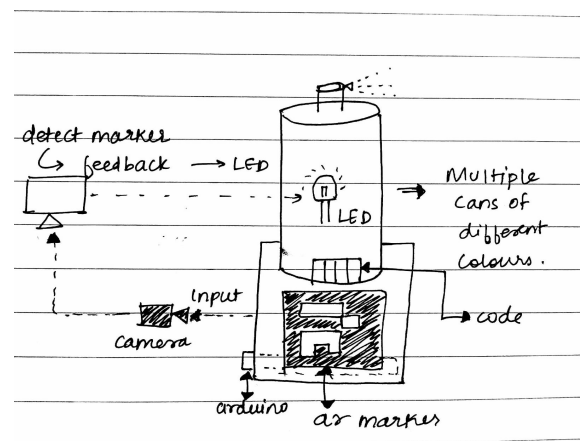 detect marker
feedback → LED
LED
Multiple
cans of
different
colours.
input
camera
code
arduino
ar marker